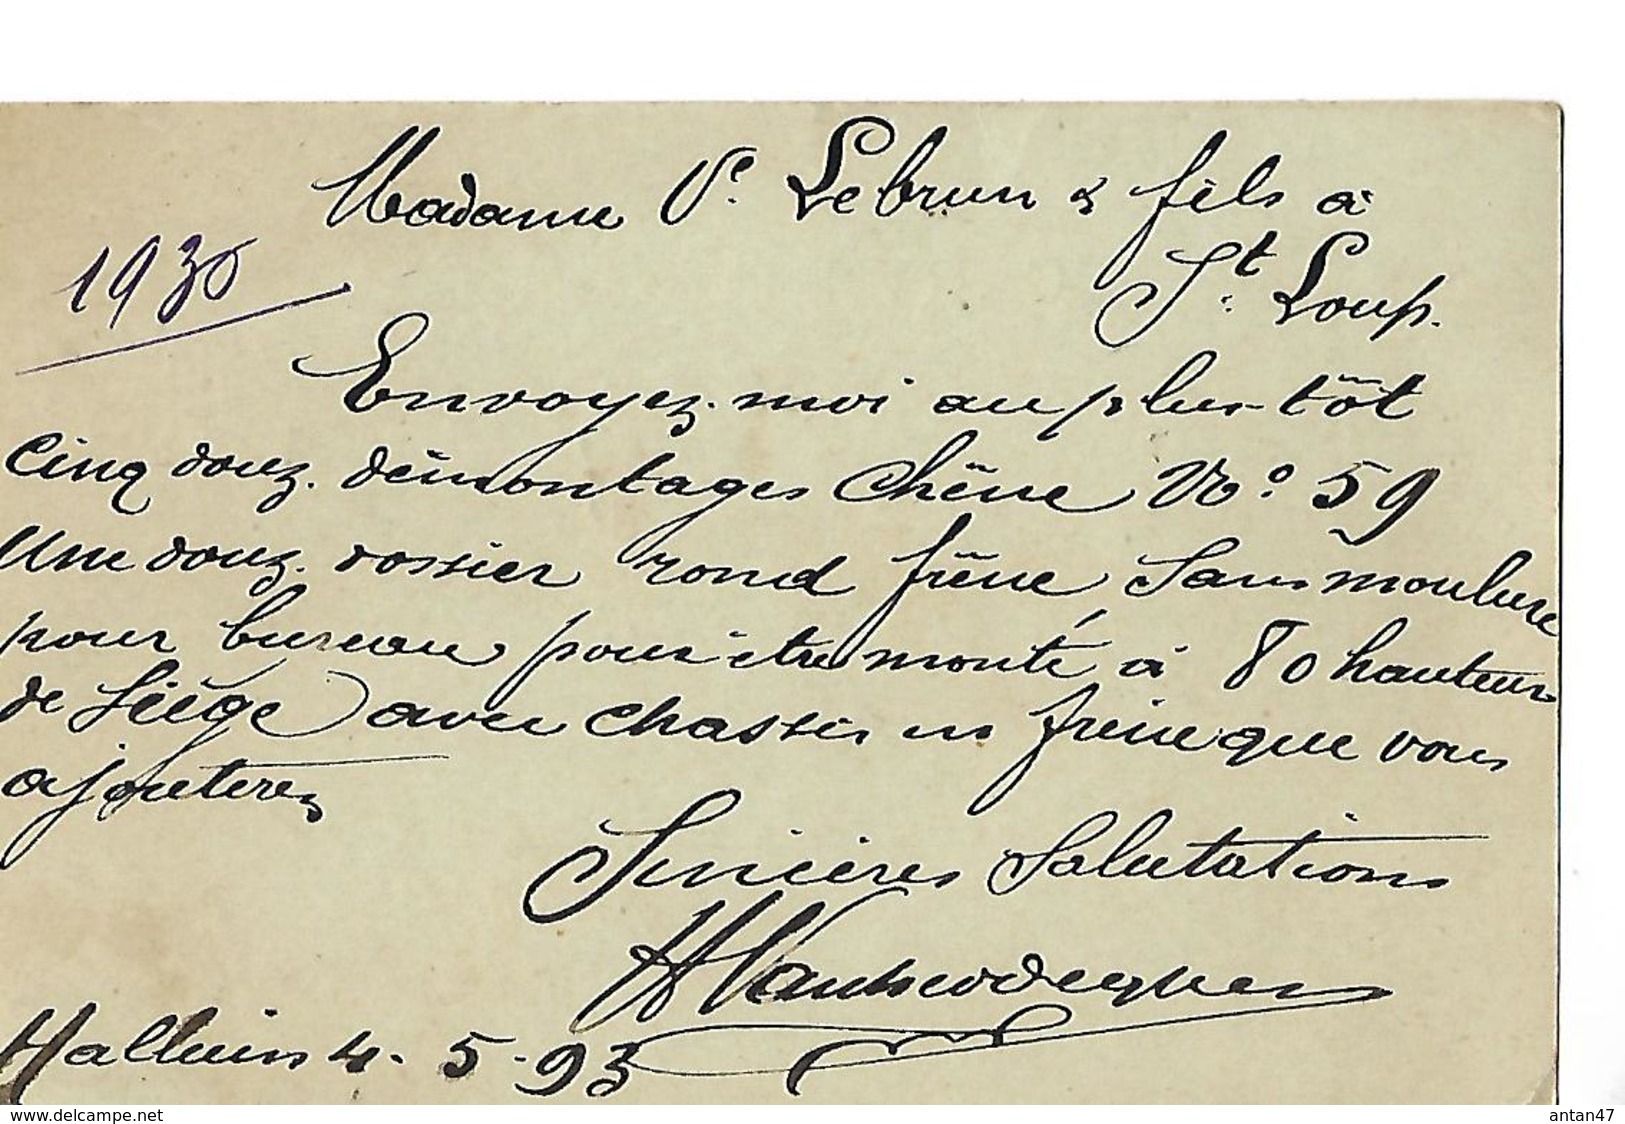 Madame Ve. Lebrun & fils à
St. Loup.
1930
Envoyez-moi au plus tôt
Cinq douz. démontages Chêne No. 59
Une douz. dossier rond frêne sans moulure
pour bureau pour être monté à 80 hauteur
de siège avec chassis en frêne que vous
ajouterez
Sincères Salutations
Halluin 4. 5. 93
www.delcampe.net
antan47